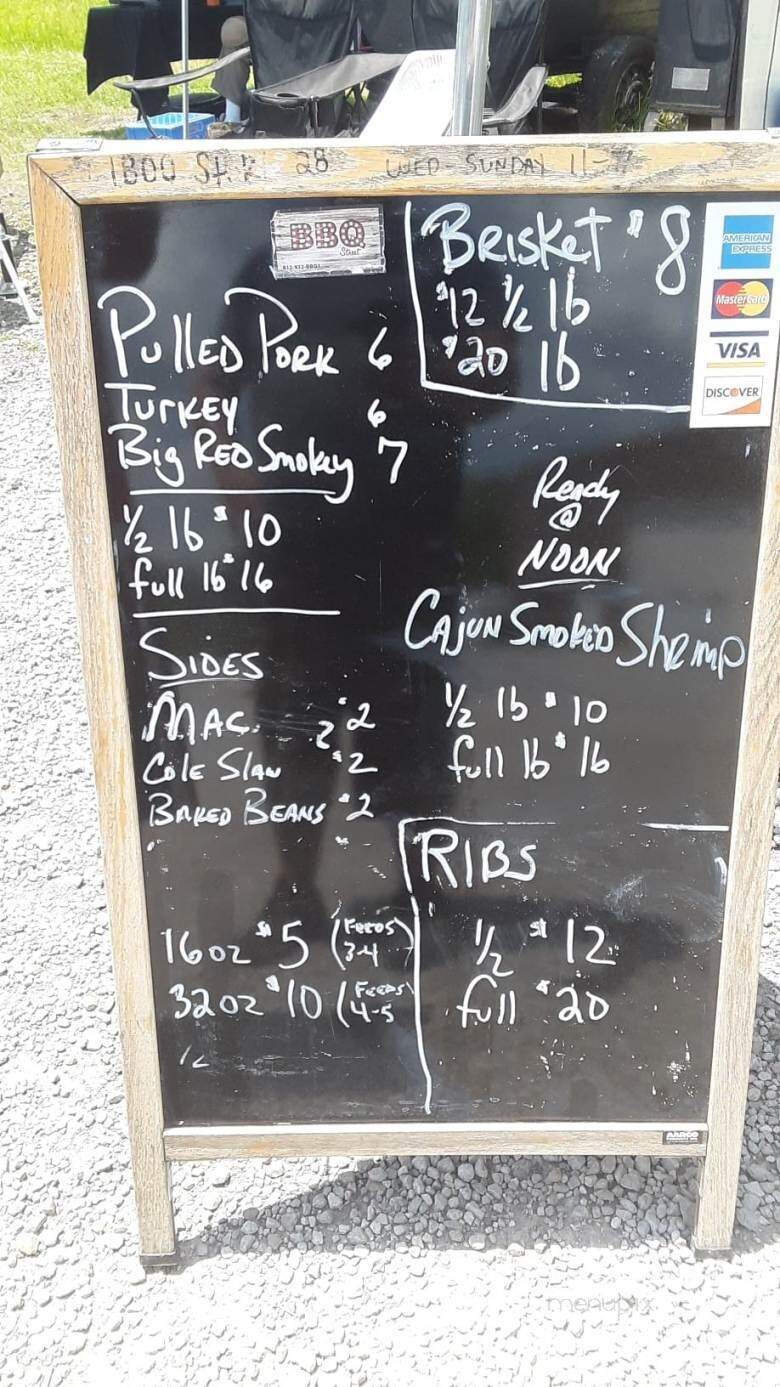 1800 St. R 28 WED - SUNDAY 11-7
BBQ
Street
BRISKET $8
$12 ½ lb
$20 lb
AMERICAN EXPRESS
MasterCard
VISA
DISCOVER
PULLED PORK 6
TURKEY 6
Big RED Smokey 7
½ lb $10
full lb $16
Ready
@
NOON
CAJUN SMOKED SHRIMP
½ lb $10
full lb $16
SIDES
MAC. $2
COLE SLAW $2
BAKED BEANS $2
16oz $5 (FEEDS 3-4)
32oz $10 (FEEDS 4-5
RIBS
½ $12
full $20
AARCO
menupix